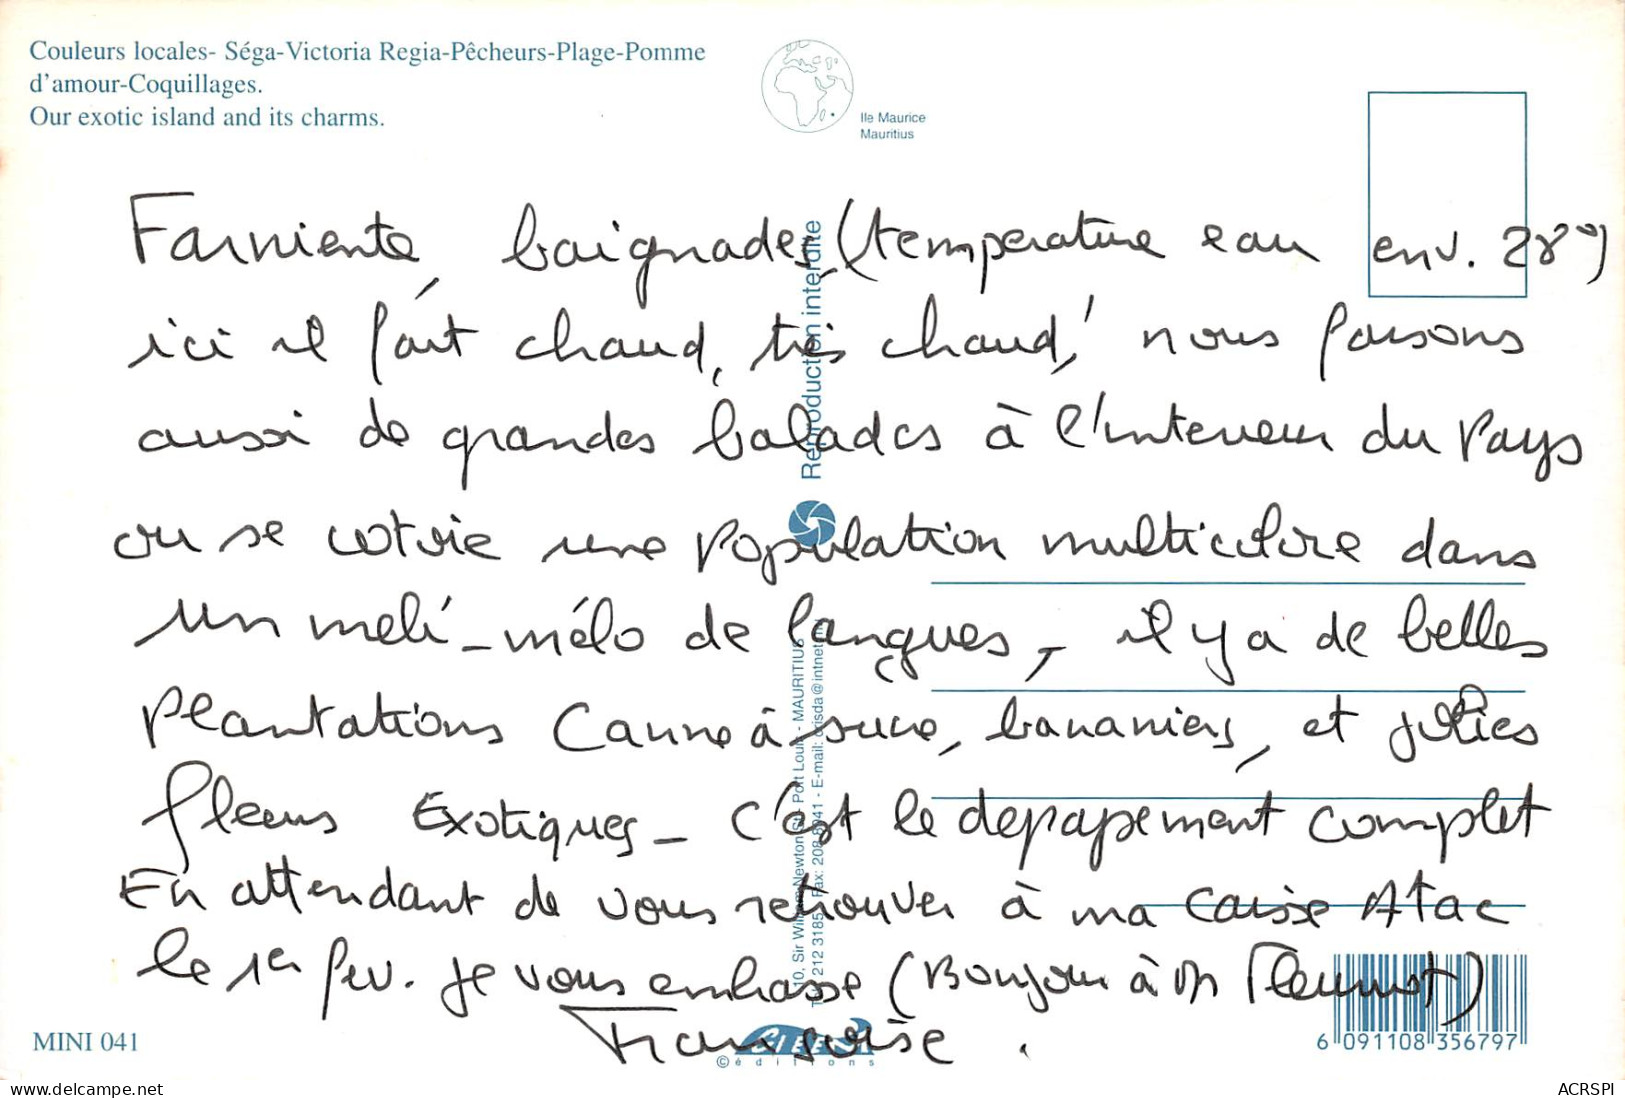 Couleurs locales- Séga-Victoria Regia-Pêcheurs-Plage-Pomme
d'amour-Coquillages.
Our exotic island and its charms.
Ile Maurice
Mauritius
Farniente, baignades, (température eau env. 28°)
ici il fait chaud, très chaud, nous faisons
aussi de grandes balades à l'interieur du Pays
ou se cotoie une Population multicolore dans
un meli-mélo de langues, il y a de belles
Plantations Canne à sucre, bananiers, et jolies
fleurs Exotiques - C'est le depaysement complet
En attendant de vous retrouver à ma caisse Atac
le 1er fev. Je vous embrasse (Bonjour à M Fleurmot)
Françoise.
Reproduction interdite
10, Sir William Newton St - Port Louis - MAURITIUS
MINI 041
© éditions
6 091108 356797
ACRSPI
delcampe.net